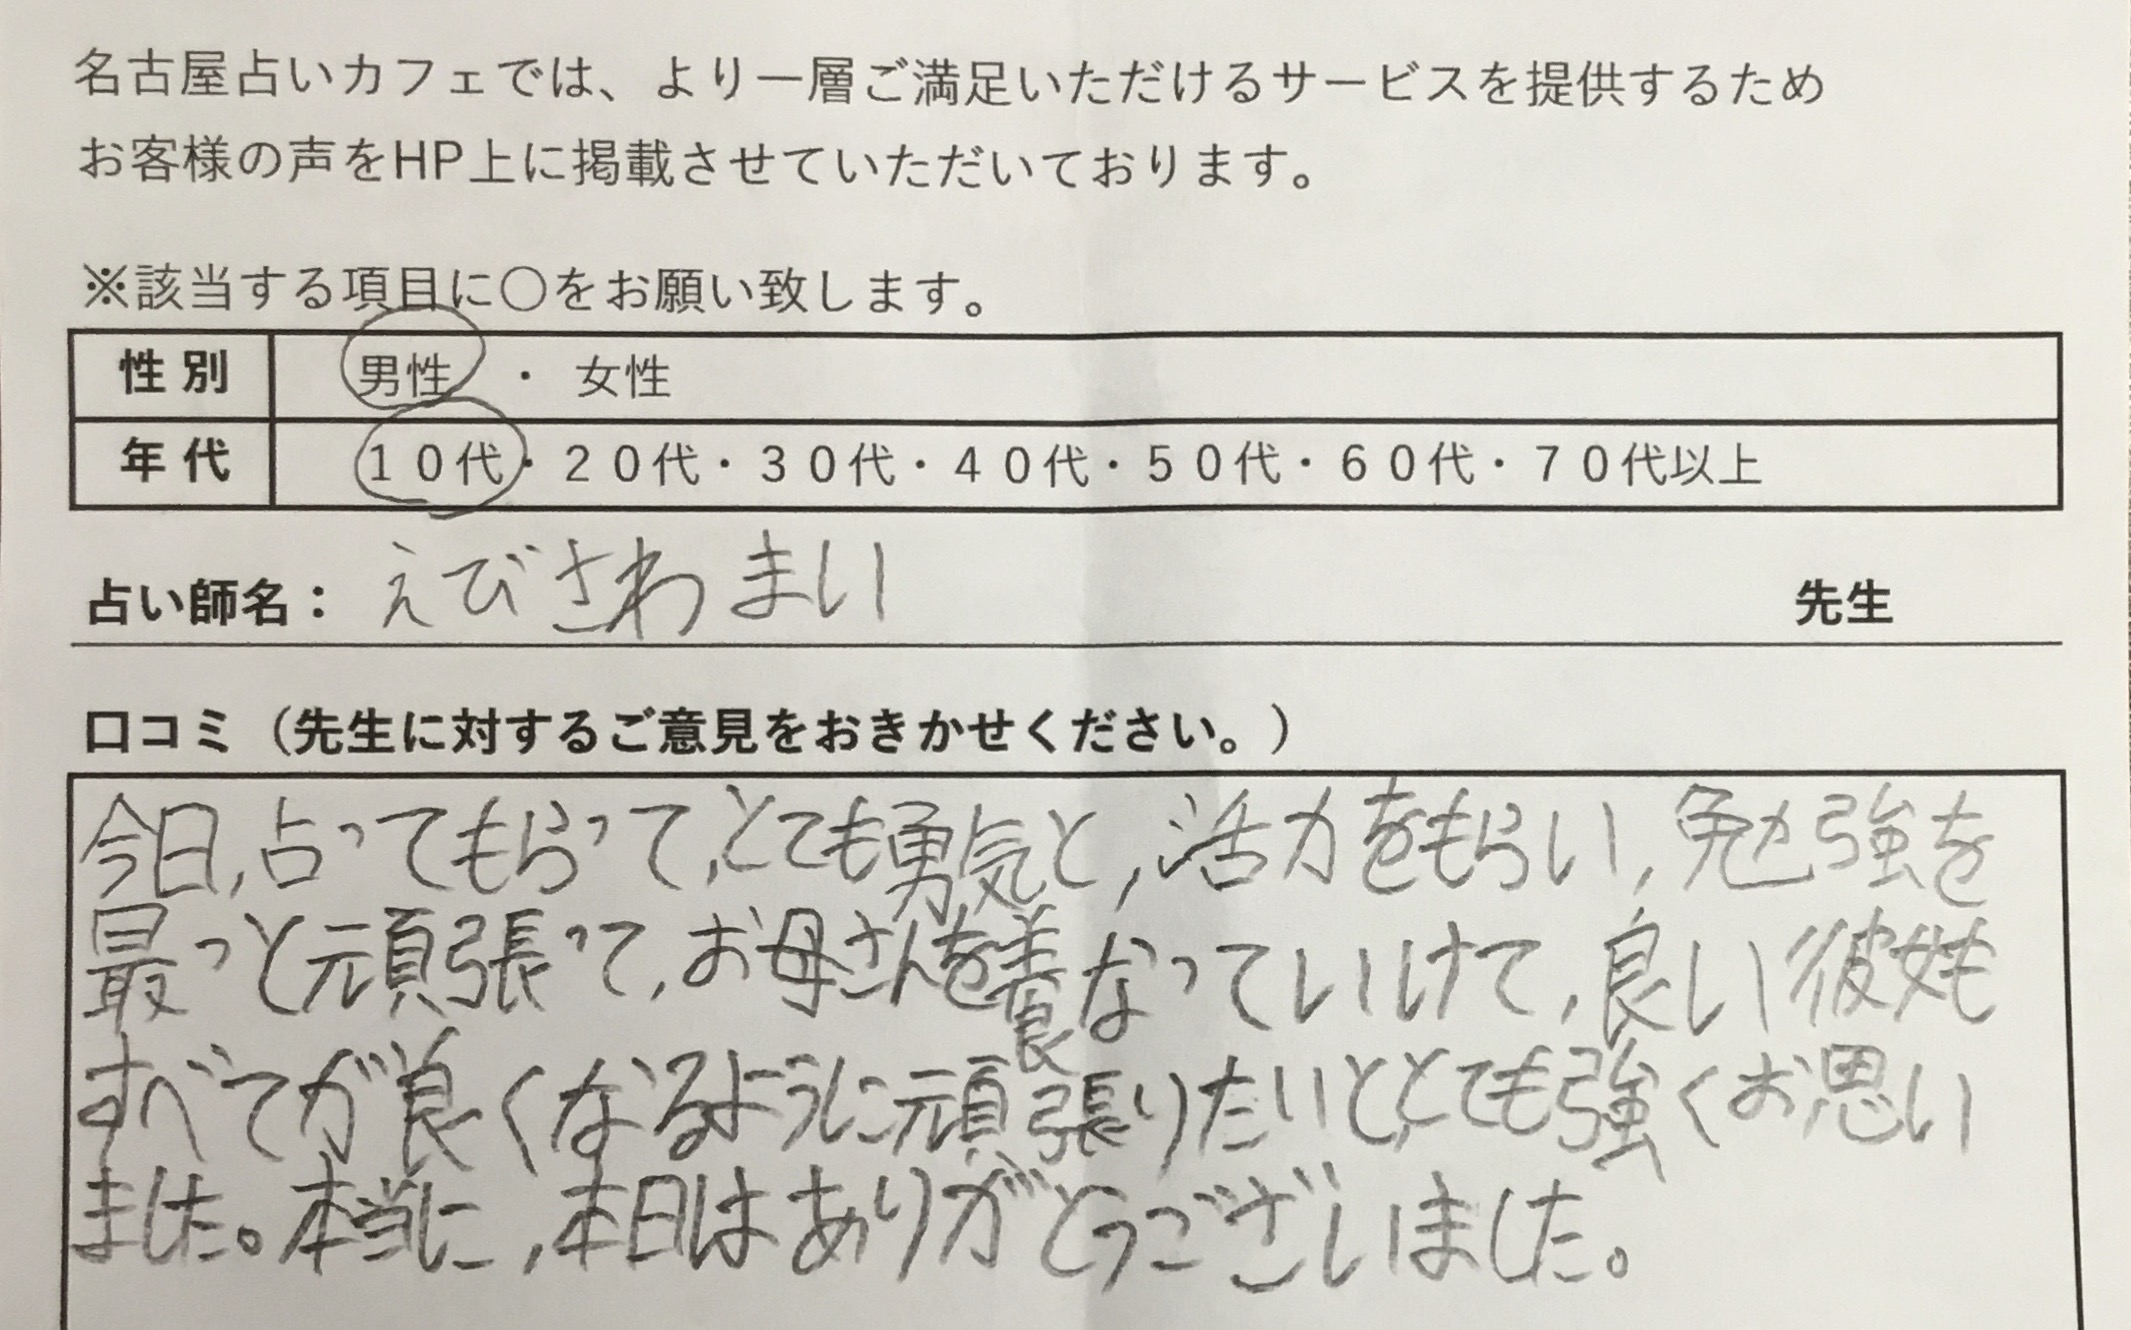 名古屋占いカフェでは、より一層ご満足いただけるサービスを提供するため
お客様の声をHP上に掲載させていただいております。
※該当する項目に〇をお願い致します。
性別 男性 ・ 女性
年代 10代・20代・30代・40代・50代・60代・70代以上
占い師名： えびさわ まい 先生
口コミ（先生に対するご意見をおきかせください。）
今日,占ってもらって,とても勇気と,活力をもらい,勉強を
最っと頑張って,お母さんを養なっていいけて,良い彼女も
すべてが良くなるように頑張りたいと,とても強くお思い
ました。本当に,本日はありがとうございました。